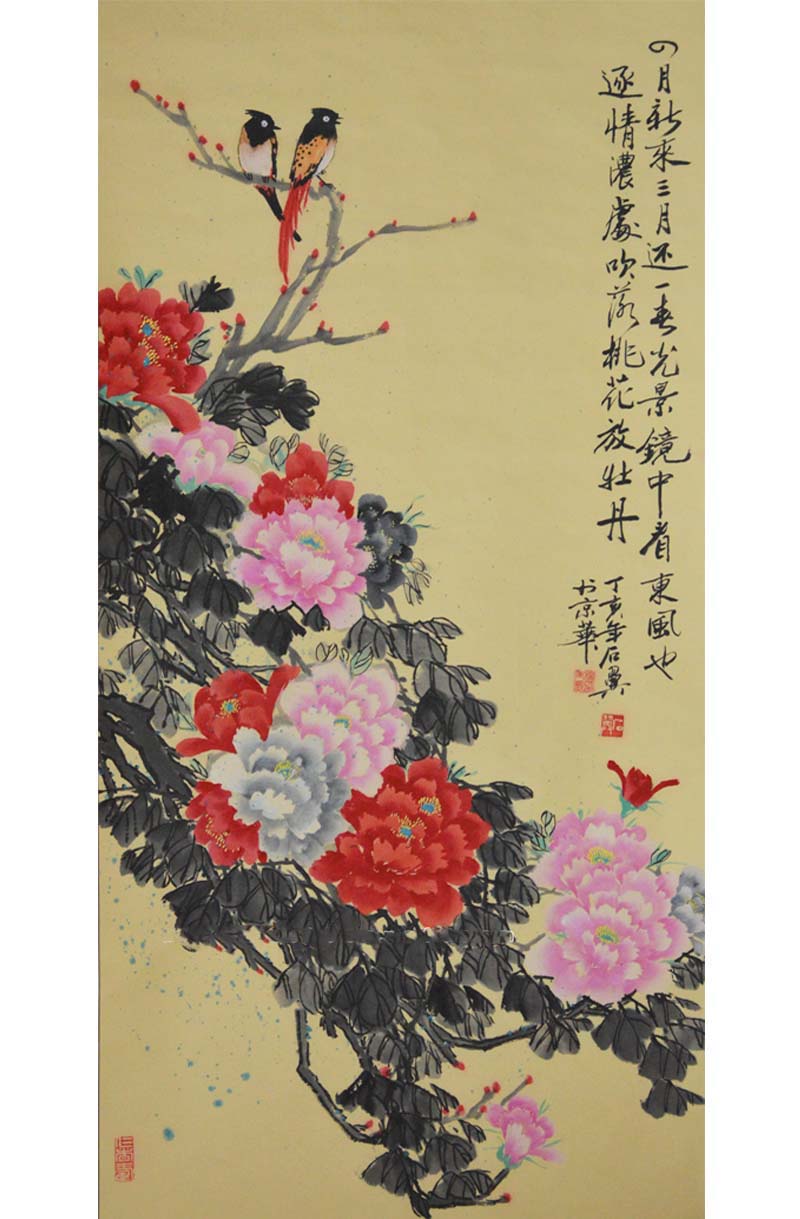 四月新來三月还一春光景鏡中看東風也
逐情濃處吹落桃花放牡丹
丁亥年石翼
书京華